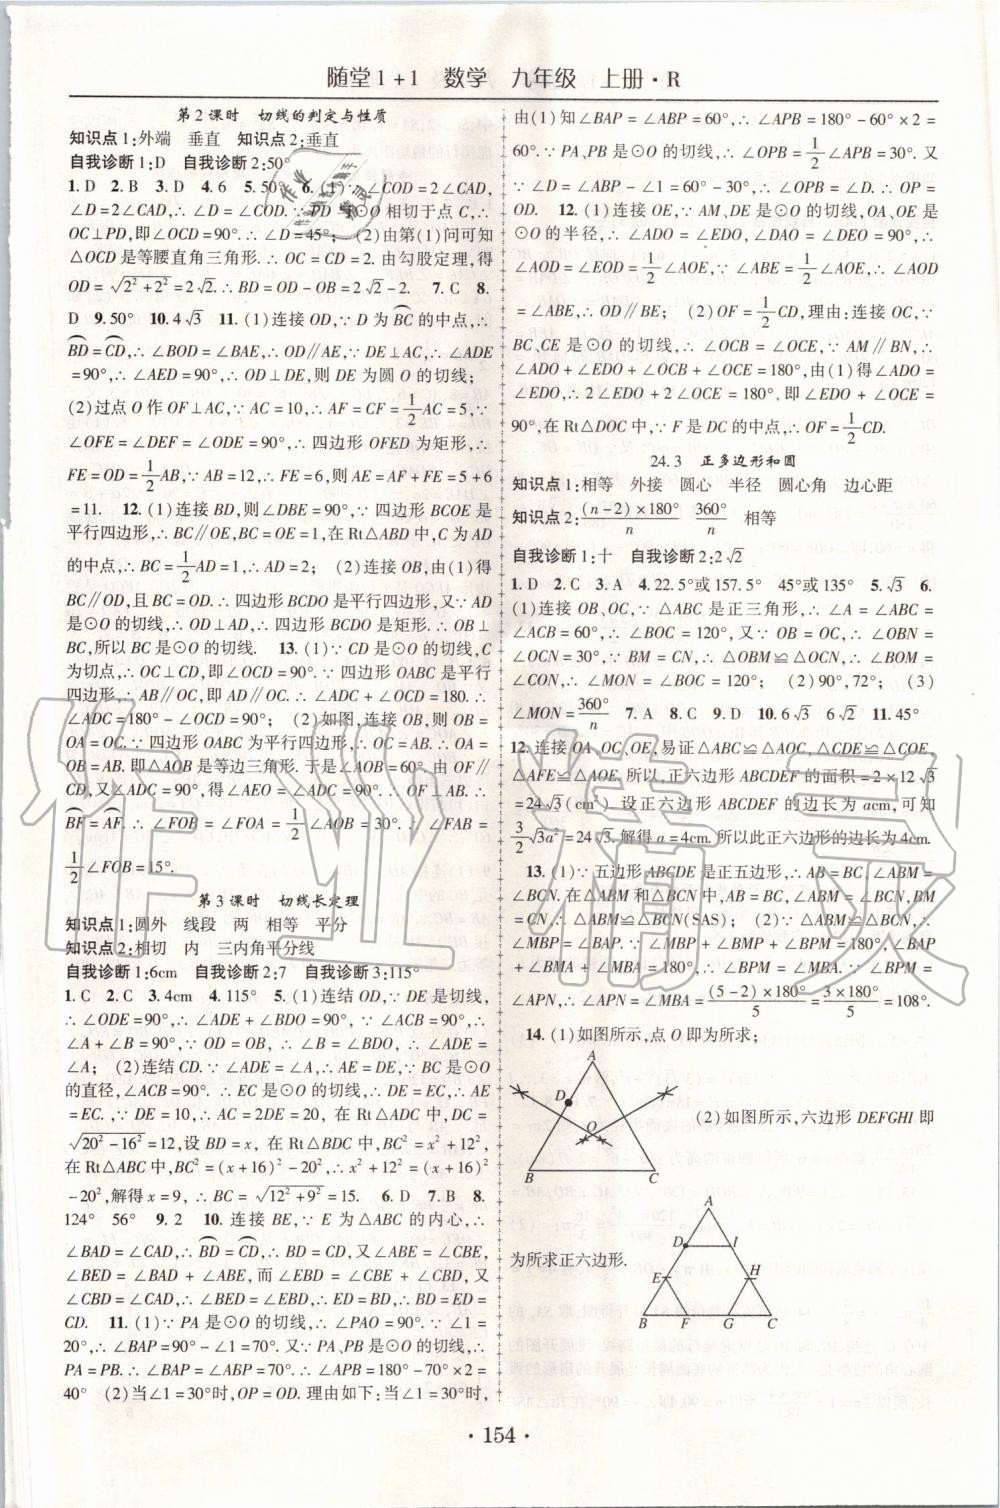 随堂1+1 数学 九年级 上册·R
第2课时 切线的判定与性质
知识点1:外端 垂直 知识点2:垂直
自我诊断1:D 自我诊断2:50°
1. D 2. B 3. D 4. 6 5. 50° 6. (1)∵∠COD=2∠CAD,
∠D=2∠CAD,∴∠D=∠COD. ∵PD与⊙O相切于点C,∴
OC⊥PD,即∠OCD=90°. ∴∠D=45°; (2)由第(1)问可知
△OCD是等腰直角三角形. ∴OC=CD=2. 由勾股定理,得
OD=√(2²+2²)=2√2. ∴BD=OD-OB=2√2-2. 7. C 8.
D 9. 50° 10. 4√3 11. (1)连接OD,∵D为⌒BC的中点,∴
⌒BD=⌒CD,∴∠BOD=∠BAE,∴OD∥AE,∵DE⊥AC,∴∠ADE
=90°,∴∠AED=90°,∴OD⊥DE,则DE为圆O的切线;
(2)过点O作OF⊥AC,∵AC=10,∴AF=CF=1/2AC=5,∵
∠OFE=∠DEF=∠ODE=90°,∴四边形OFED为矩形,∴
FE=OD=1/2AB,∵AB=12,∴FE=6,则AE=AF+FE=5+6
=11. 12. (1)连接BD,则∠DBE=90°,∵四边形BCOE是
平行四边形,∴BC∥OE,BC=OE=1,在Rt△ABD中,C为AD
的中点,∴BC=1/2AD=1,∴AD=2; (2)连接OB,由(1)得
BC∥OD,且BC=OD,∴四边形BCDO是平行四边形,又∵AD
是⊙O的切线,∴OD⊥AD,∴四边形BCDO是矩形. ∴OB⊥
BC,所以BC是⊙O的切线. 13. (1)∵CD是⊙O的切线,C
为切点,∴OC⊥CD,即∠OCD=90°,∵四边形OABC是平行
四边形,∴AB∥OC,即AD∥OC,∴∠ADC+∠OCD=180. ∴
∠ADC=180°-∠OCD=90°; (2)如图,连接OB,则OB=
OA=OC. ∵四边形OABC为平行四边形,∴OC=AB. ∴OA=
OB=AB. 即△AOB是等边三角形. 于是∠AOB=60°. 由OF∥
CD,又∠ADC=90°,得∠AEO=∠ADC=90°. ∴OF⊥AB. ∴
⌒BF=⌒AF. ∴∠FOB=∠FOA=1/2∠AOB=30°. ∴∠FAB=
1/2∠FOB=15°.
第3课时 切线长定理
知识点1:圆外 线段 两 相等 平分
知识点2:相切 内 三内角平分线
自我诊断1:6cm 自我诊断2:7 自我诊断3:115°
1. C 2. C 3. 4cm 4. 115° 5. (1)连结OD,∵DE是切线,
∴∠ODE=90°,∴∠ADE+∠BDO=90°,∵∠ACB=90°,∴
∠A+∠B=90°,∵OD=OB,∴∠B=∠BDO,∴∠ADE=
∠A; (2)连结CD. ∵∠ADE=∠A,∴AE=DE,∵BC是⊙O
的直径,∠ACB=90°. ∴EC是⊙O的切线,∴DE=EC,∴AE
=EC. ,∵DE=10,∴AC=2DE=20,在Rt△ADC中,DC=
√(20²-16²)=12,设BD=x,在Rt△BDC中,BC²=x²+12²,
在Rt△ABC中,BC²=(x+16)²-20²,∴x²+12²=(x+16)²
-20²,解得x=9,∴BC=√(12²+9²)=15. 6. D 7. B 8.
124° 56° 9. 2 10. 连接BE,∵E为△ABC的内心,∴
∠BAD=∠CAD,∴⌒BD=⌒CD,∴BD=CD,∵∠ABE=∠CBE,
∠BED=∠BAD+∠ABE,而∠EBD=∠CBE+∠CBD,又
∠CBD=∠CAD,∴∠BED=∠EBD,∴ED=BD,∴BD=ED=
CD. 11. (1)∵PA是⊙O的切线,∴∠PAO=90°. ∵∠1=
20°,∴∠BAP=90°-∠1=70°. 又∵PA、PB是⊙O的切线,∴
PA=PB. ∴∠BAP=∠ABP=70°. ∴∠APB=180°-70°×2=
40° (2)当∠1=30°时,OP=OD. 理由如下:当∠1=30°时,
由(1)知∠BAP=∠ABP=60°,∴∠APB=180°-60°×2=
60°. ∵PA、PB是⊙O的切线,∴∠OPB=1/2∠APB=30°. 又
∵∠D=∠ABP-∠1=60°-30°=30°,∴∠OPB=∠D. ∴OP=
OD. 12. (1)连接OE,∵AM、DE是⊙O的切线,OA、OE是
⊙O的半径,∴∠ADO=∠EDO,∠DAO=∠DEO=90°,∴
∠AOD=∠EOD=1/2∠AOE,∵∠ABE=1/2∠AOE,∴∠AOD
=∠ABE,∴OD∥BE; (2)OF=1/2CD,理由:连接OC,∵
BC、CE是⊙O的切线,∴∠OCB=∠OCE,∵AM∥BN,∴
∠ADO+∠EDO+∠OCB+∠OCE=180°,由(1)得∠ADO=
∠EDO,∴2∠EDO+2∠OCE=180°,即∠EDO+∠OCE=
90°,在Rt△DOC中,∵F是DC的中点,∴OF=1/2CD.
24.3 正多边形和圆
知识点1:相等 外接 圆心 半径 圆心角 边心距
知识点2:(n-2)×180°/n 360°/n 相等
自我诊断1:十 自我诊断2:2√2
1. D 2. C 3. A 4. 22.5°或157.5° 45°或135° 5. √3 6.
(1)连接OB、OC,∵△ABC是正三角形,∴∠A=∠ABC=
∠ACB=60°,∴∠BOC=120°,又∵OB=OC,∴∠OBN=
∠OCN=30°,∵BM=CN,∴△OBM≌△OCN,∴∠BOM=
∠CON,∴∠MON=∠BOC=120°; (2)90°,72°; (3)
∠MON=360°/n 7. A 8. C 9. D 10. 6√3 6√2 11. 45°
12. 连接OA、OC、OE,易证△ABC≌△AOC,△CDE≌△COE,
△AFE≌△AOE. 所以,正六边形ABCDEF的面积=2×12√3
=24√3(cm²). 设正六边形ABCDEF的边长为acm,可知
3/2√3a²=24√3. 解得a=4cm. 所以此正六边形的边长为4cm.
13. (1)∵五边形ABCDE是正五边形,∴AB=BC. ∠ABM=
∠BCN. 在△ABM和△BCN中,AB=BC,∠ABM=∠BCN,BM
=CN. ∴△ABM≌△BCN(SAS); (2)∵△ABM≌△BCN,∴
∠MBP=∠BAP. ∵∠MBP+∠BMP+∠BPM=180°,∠BAP
+∠ABM+∠MBA=180°,∴∠BPM=∠MBA. ∵∠BPM=
∠APN,∴∠APN=∠MBA=(5-2)×180°/5=3×180°/5=108°.
14. (1)如图所示,点O即为所求;
A
D
O
B C
(2)如图所示,六边形DEFGHI即
为所求正六边形.
A
D I
E H
B F G C
·154·
作业精灵